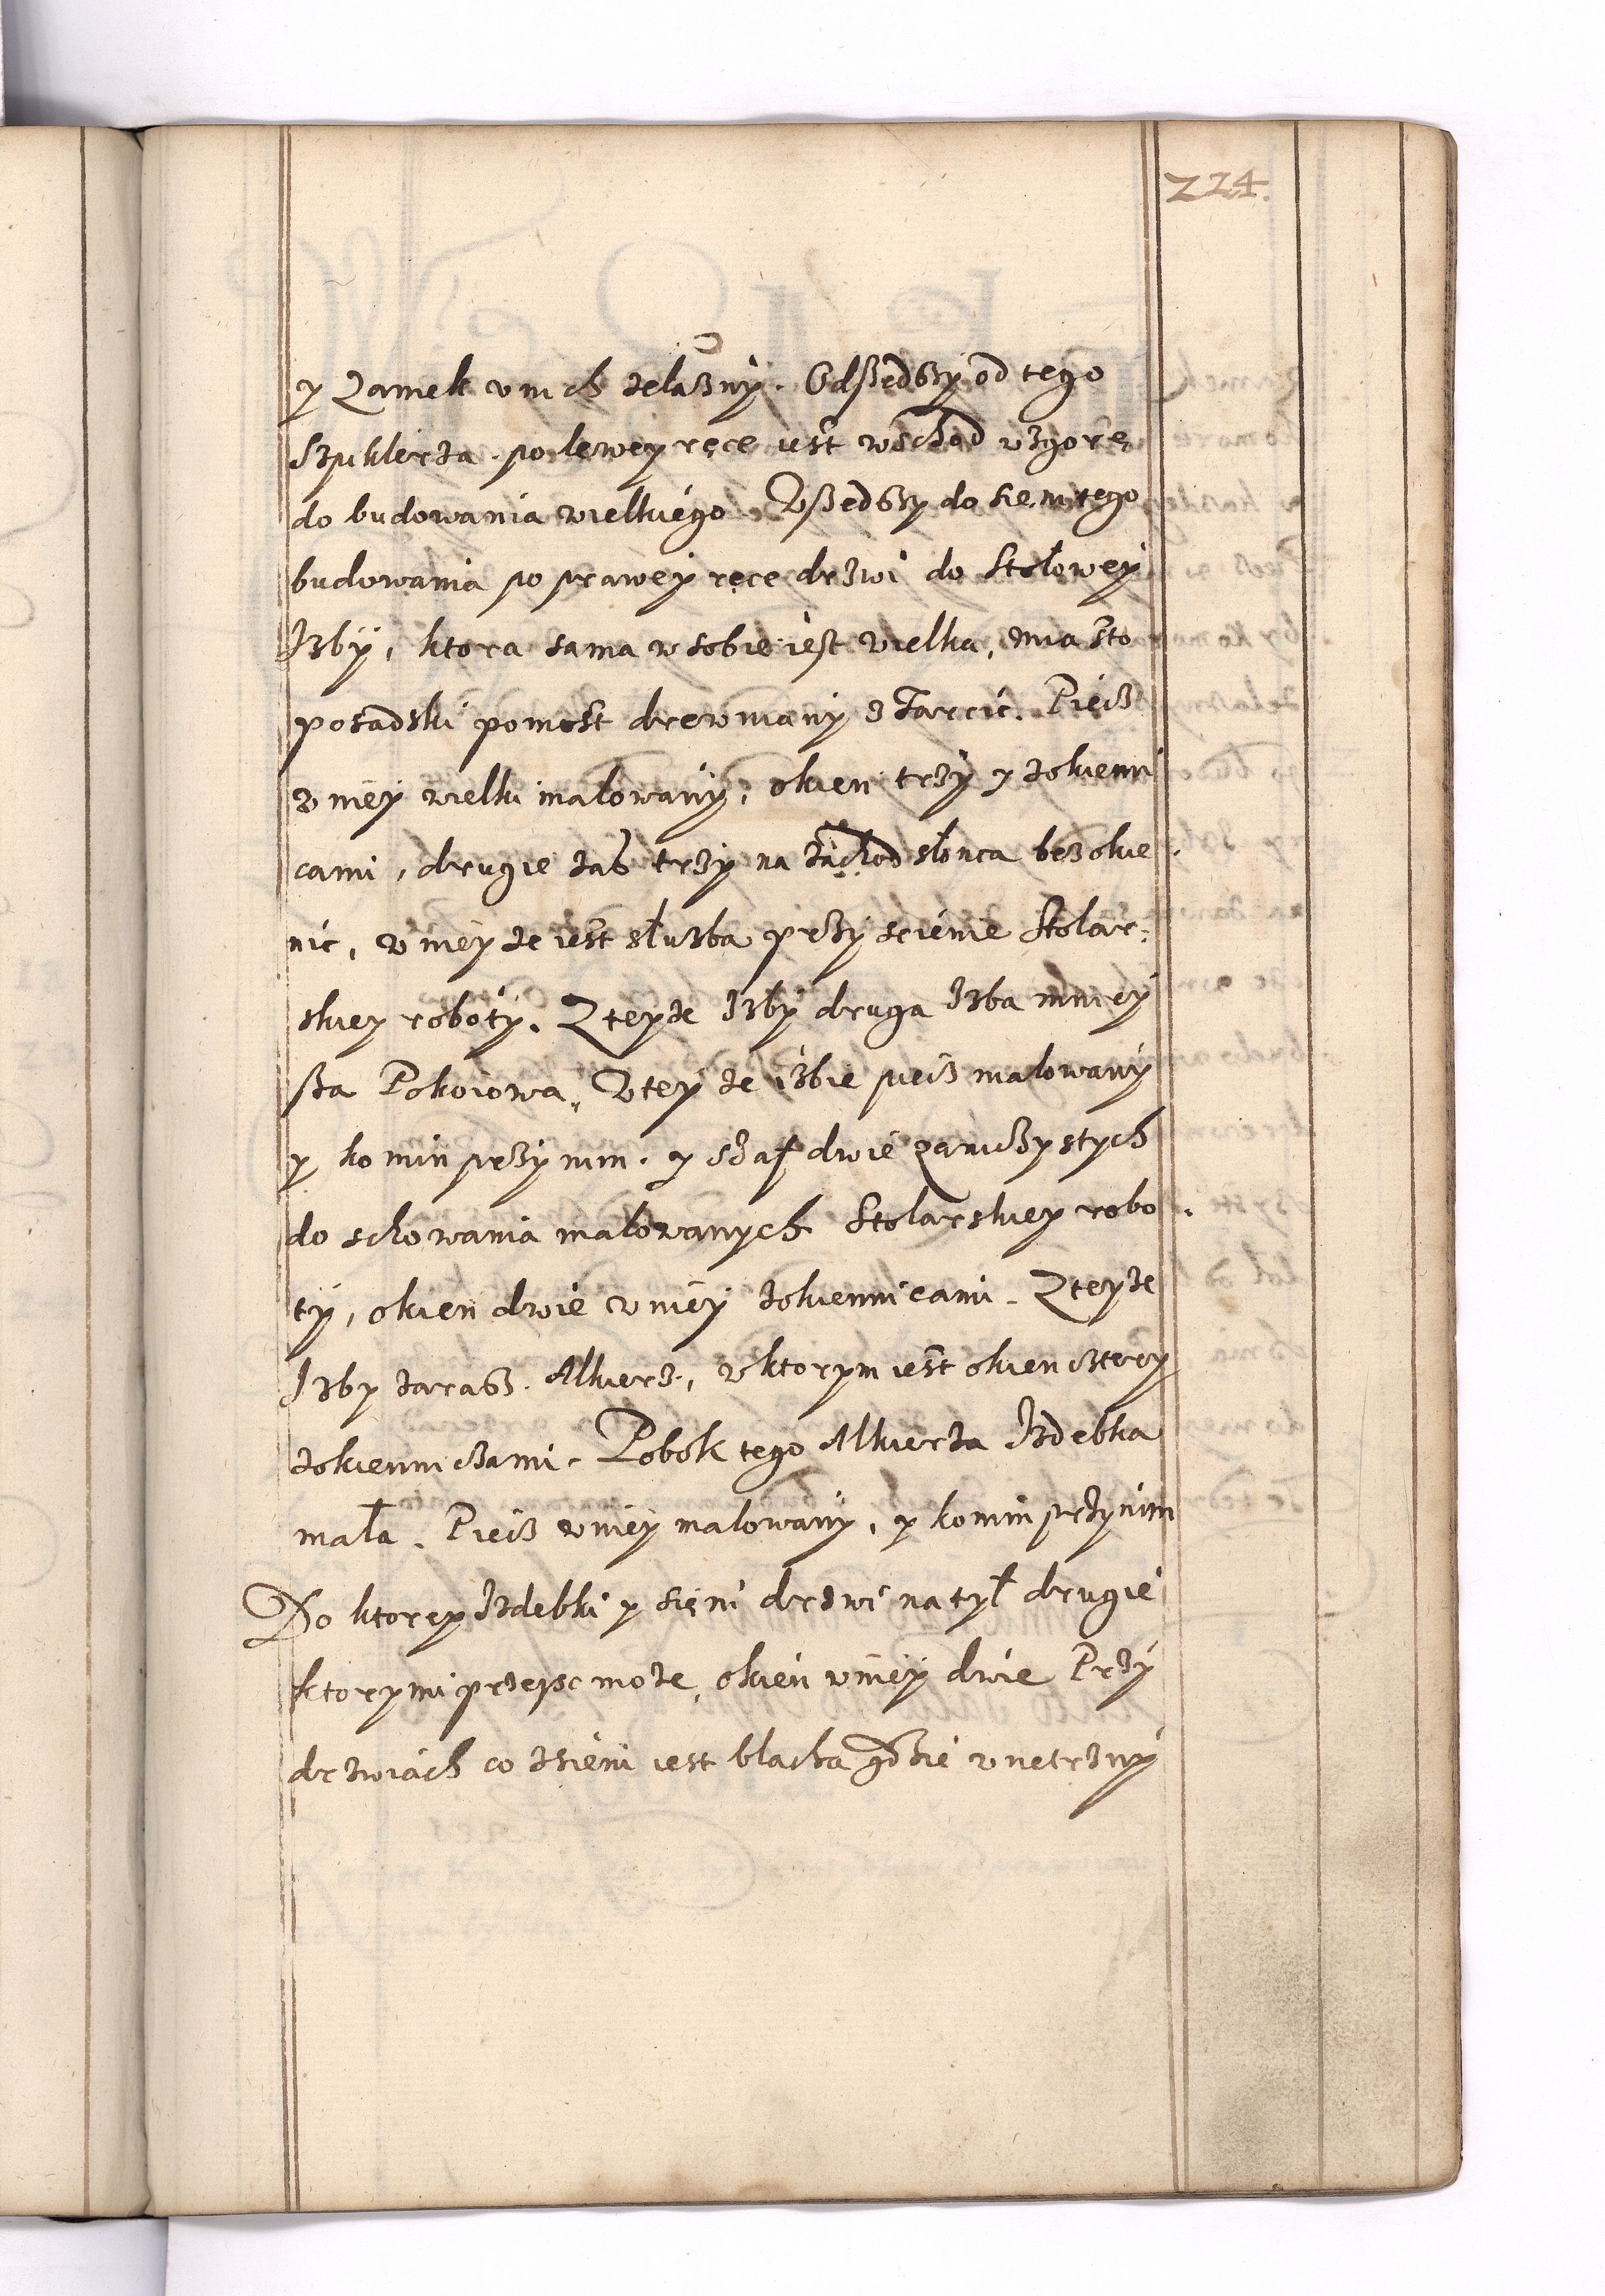 224.
y Zamek v nich żelazny. Odszedszy od tego
Szpiklerza. po lewey ręce iest wschod wzgorę
do budowania wielkiégo. Wszedszy do sieni tego
budowania po prawey ręce drzwi do Stołowey
Izby, ktora sama w sobie iest wielka, miasto
posadski pomost drewniany z Tarcic. Piecz
w niey wielki malowany, okien trzy z okienni
cami, drugie zas trzy na zachod słonca bez okie
nic, w niey że iest służba przy scienie Stolar:
skiey roboty. Z teyże Izby druga Izba mniey
sza Pokoiowa, W teyże izbie piecz malowany
y komin przy nim. y szaf dwie zamczystych
do schowania malowanych Stolarskiey robo
ty, okien dwie w niey z okiennicami. Z teyże
Izby zarasz. Alkierz, w ktorym iest okien cztery
z okienniczami. Pobok tego Alkierza Izdebka
mała. Piecz w niey malowany, y komin przy nim
Do ktorey Izdebki y sieni drzwi na tył drugie
ktorymi przeysc może, okien w niey dwie Przy
drzwiach co z sieni iest blacha gdzie wnetrzny